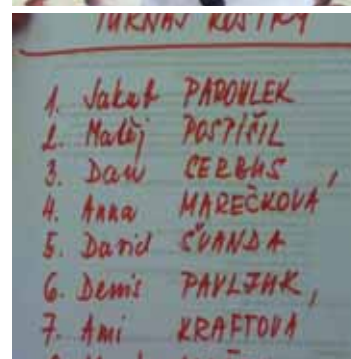 TURNAJ KOSTKY
1. Jakub PAROULEK
2. Matěj POSPÍŠIL
3. Dan CERBUS,
4. Anna MAREČKOVÁ
5. David ŠVANDA
6. Denis
7. Ami KRAFTOVÁ